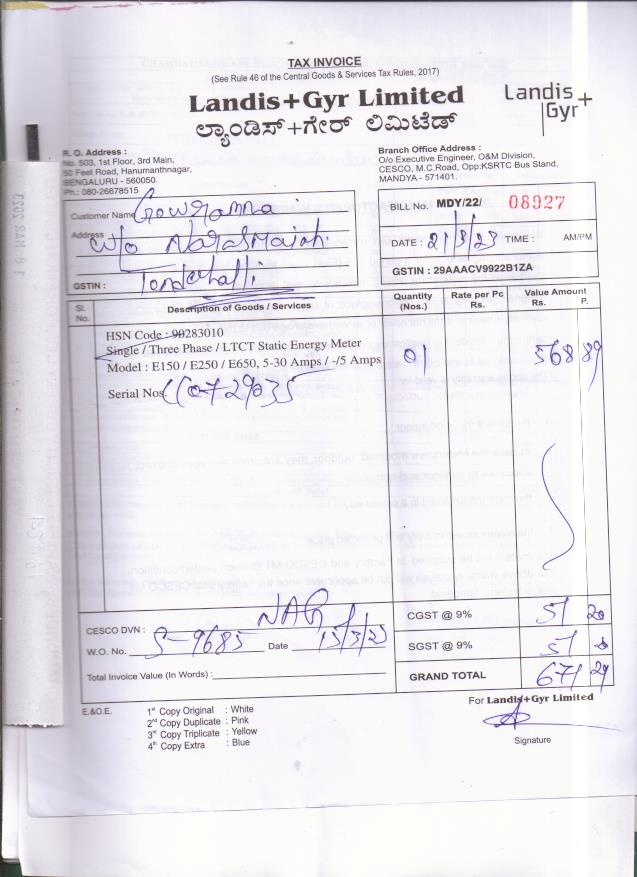 TAX INVOICE
(See Rule 46 of the Central Goods & Services Tax Rules, 2017)
Landis+Gyr Limited
ಲ್ಯಾಂಡಿಸ್+ಗೇರ್ ಲಿಮಿಟೆಡ್
Landis+
Gyr
R. O. Address :
No. 503, 1st Floor, 3rd Main,
50 Feet Road, Hanumanthnagar,
BENGALURU - 560050.
Ph.: 080-26678515
Branch Office Address :
O/o Executive Engineer, O&M Division,
CESCO, M.C.Road, Opp:KSRTC Bus Stand,
MANDYA - 571401.
Customer Name Gowramna
Address w/o
GSTIN :
BILL No. MDY/22/ 08927
DATE : 21/3/23 TIME : AM/PM
GSTIN : 29AAACV9922B1ZA
Sl. No. Description of Goods / Services Quantity (Nos.) Rate per Pc Rs. Value Amount Rs. P.
HSN Code : 90283010
Single / Three Phase / LTCT Static Energy Meter
Model : E150 / E250 / E650, 5-30 Amps / -/5 Amps 01 568 89
Serial Nos.
CESCO DVN : NAG
W.O. No. S-9685 Date 15/3/23
Total Invoice Value (In Words) :
CGST @ 9% 51 20
SGST @ 9% 51
GRAND TOTAL 671 29
E.&O.E.
1st Copy Original : White
2nd Copy Duplicate : Pink
3rd Copy Triplicate : Yellow
4th Copy Extra : Blue
For Landis+Gyr Limited
Signature
18 MAR 2023